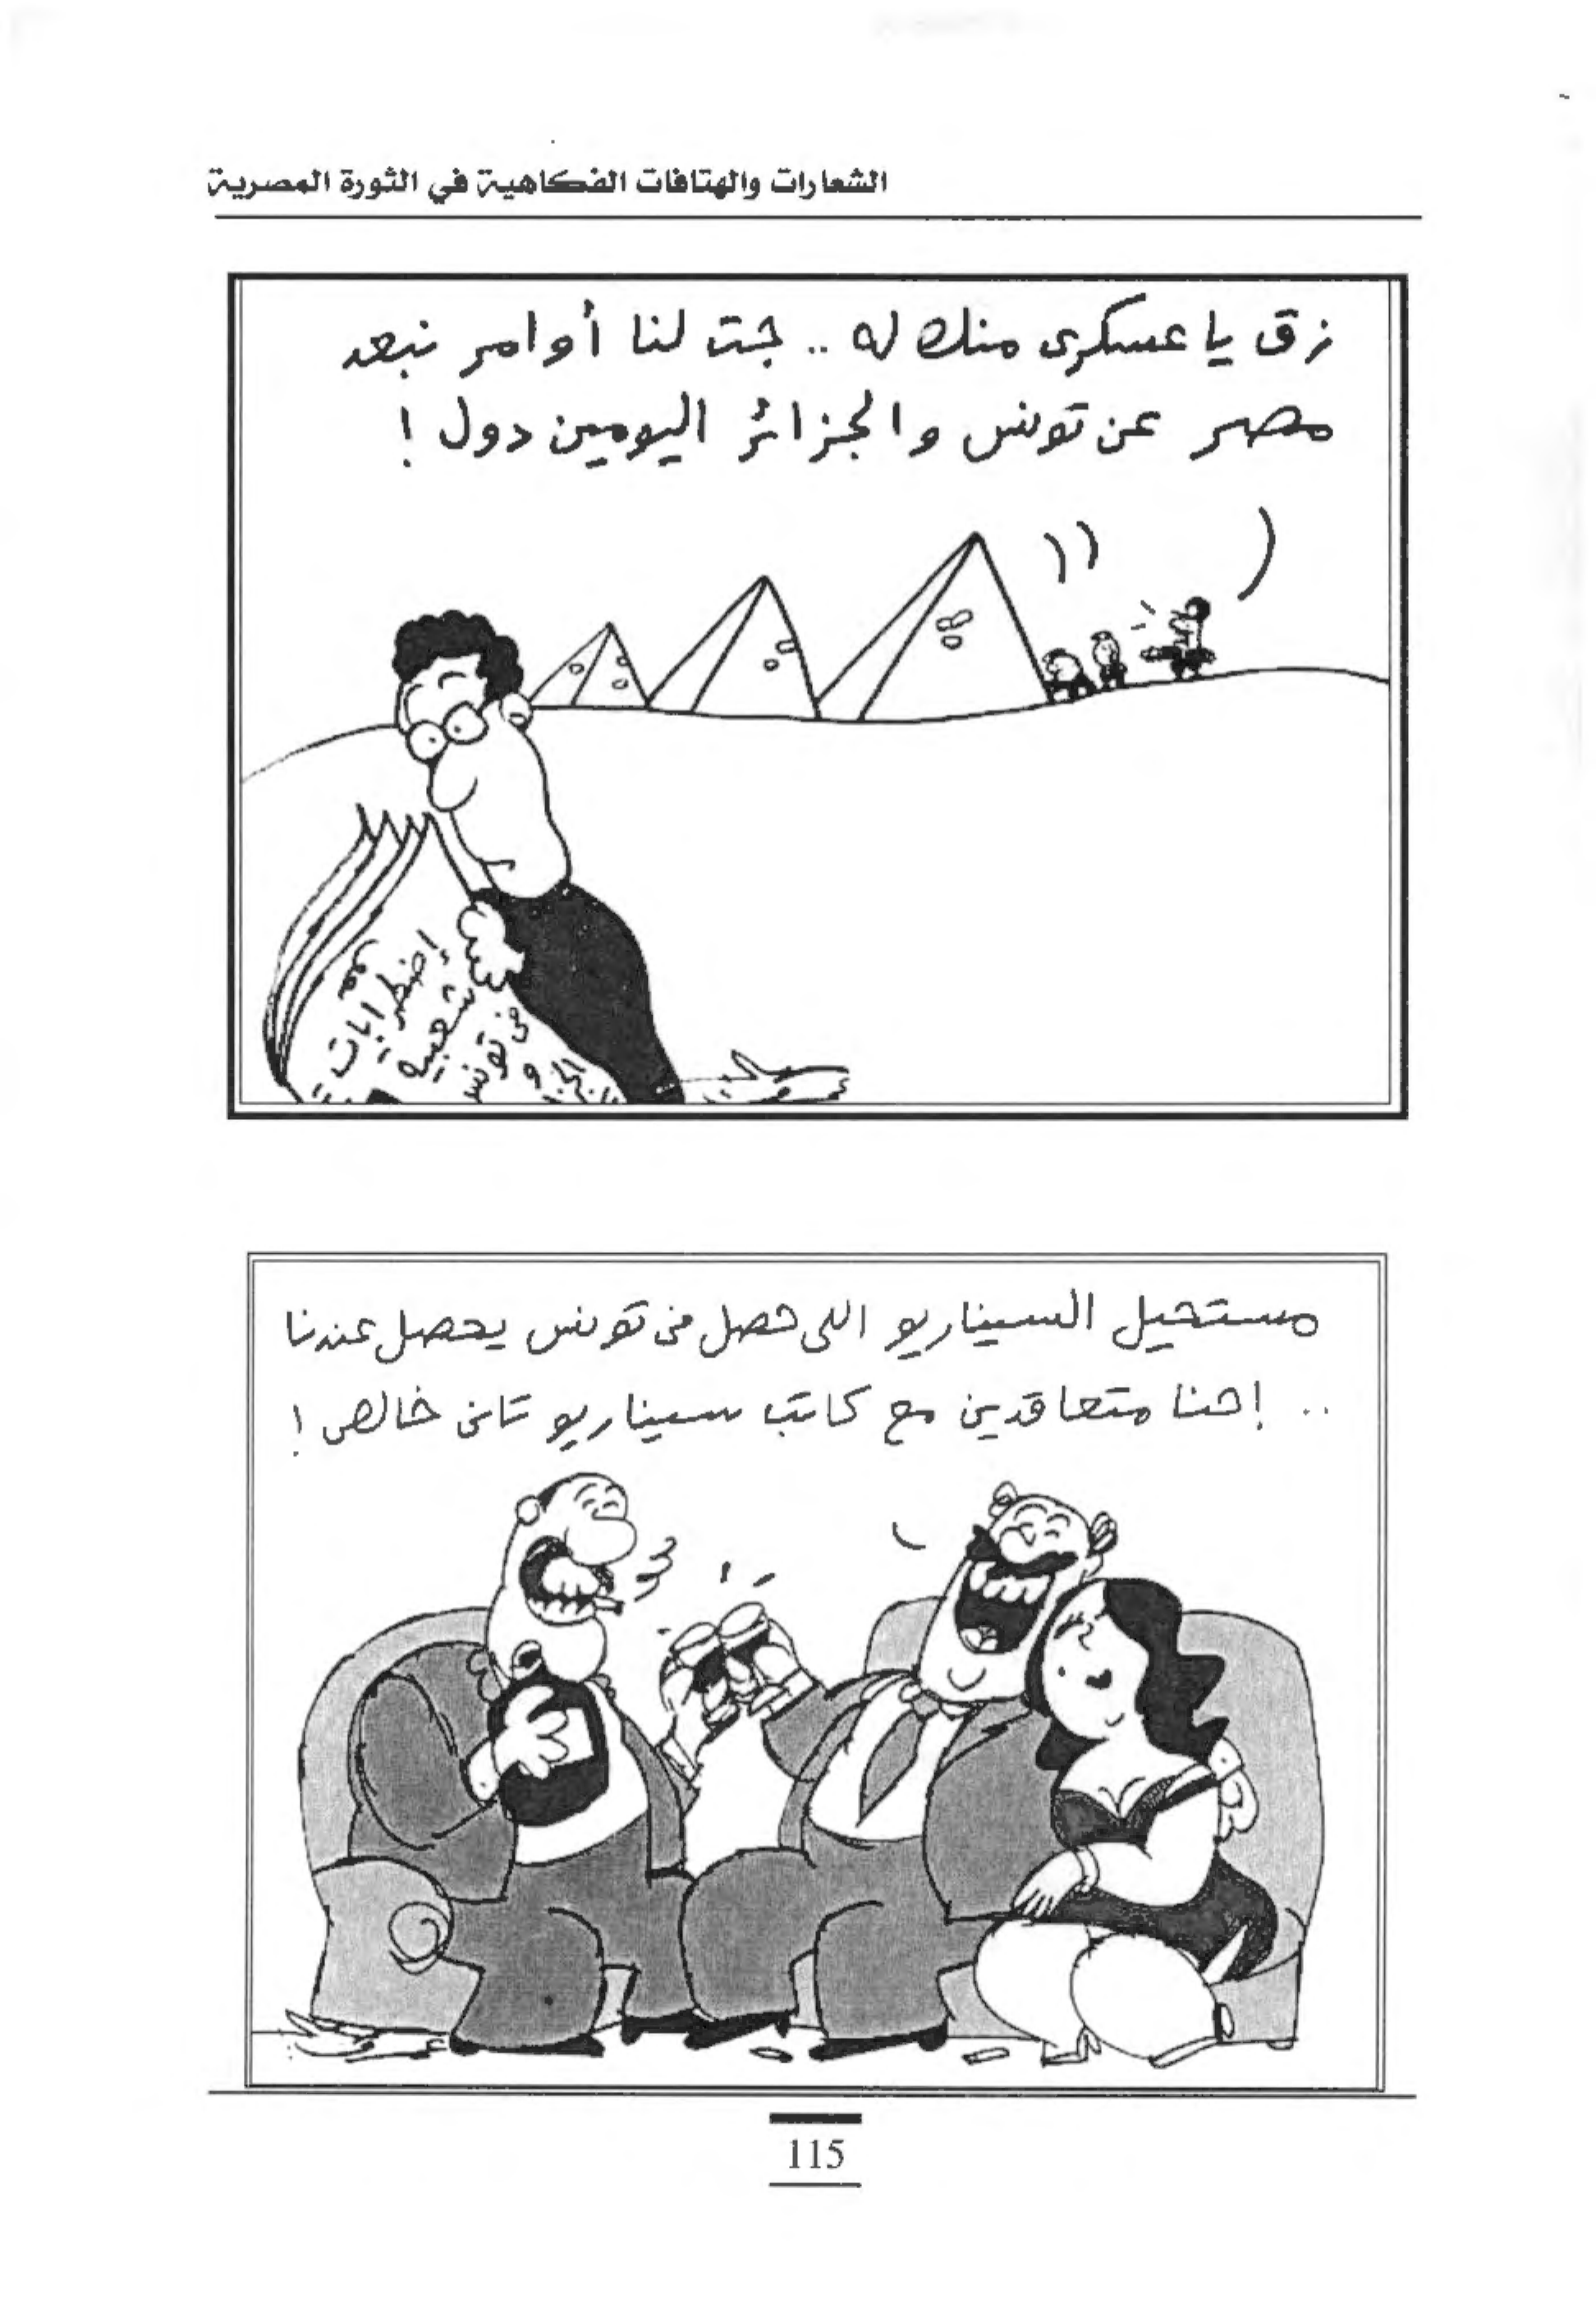 الشعارات والهتافات الفكاهية في الثورة المصرية
زق يا عسكرى منك له .. جت لنا أوامر نبعد
مصر عن تونس والجزائر اليومين دول !
إضطرابات
شعبية
فى تونس
و
مستحيل السيناريو اللى حصل فى تونس يحصل عندنا
.. إحنا متعاقدين مع كاتب سيناريو تانى خالص !
115